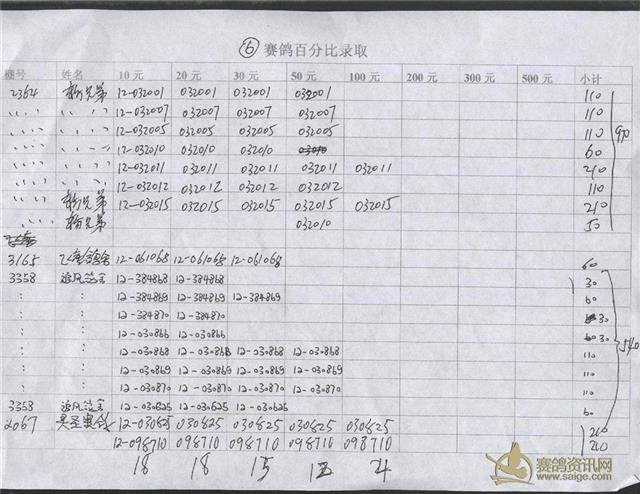 ⑥ 赛鸽百分比录取
棚号 姓名 10 元 20 元 30 元 50 元 100 元 200 元 300 元 500 元 小计
2364 杨兄弟 12-032001 032001 032001 032001 110
〃 〃 12-032007 032007 032007 032007 110
〃 〃 12-032005 032005 032005 032005 110
〃 〃 12-032010 032010 032010 60
〃 〃 12-032011 032011 032011 032011 032011 210
〃 〃 12-032012 032012 032012 032012 110
〃 杨兄弟 12-032015 032015 032015 032015 032015 210
〃 杨兄弟 032010 50
3165 12-061068 12-061068 12-061068 60
3358 12-384868 12-384868 30
: : 12-384869 12-384869 12-384869 60
: : 12-384870 12-384870 30
: : 12-030866 12-030866 30
: : 12-030868 12-030868 12-030868 12-030868 110
: : 12-030869 12-030869 12-030869 12-030869 110
: : 12-030870 12-030870 12-030870 12-030870 110
3358 12-030625 12-030625 12-030625 60
2067 12-030825 030825 030825 030825 030825 210
12-098710 098710 098710 098710 098710 210
18 18 15 4
赛鸽资讯网
www.saige.com